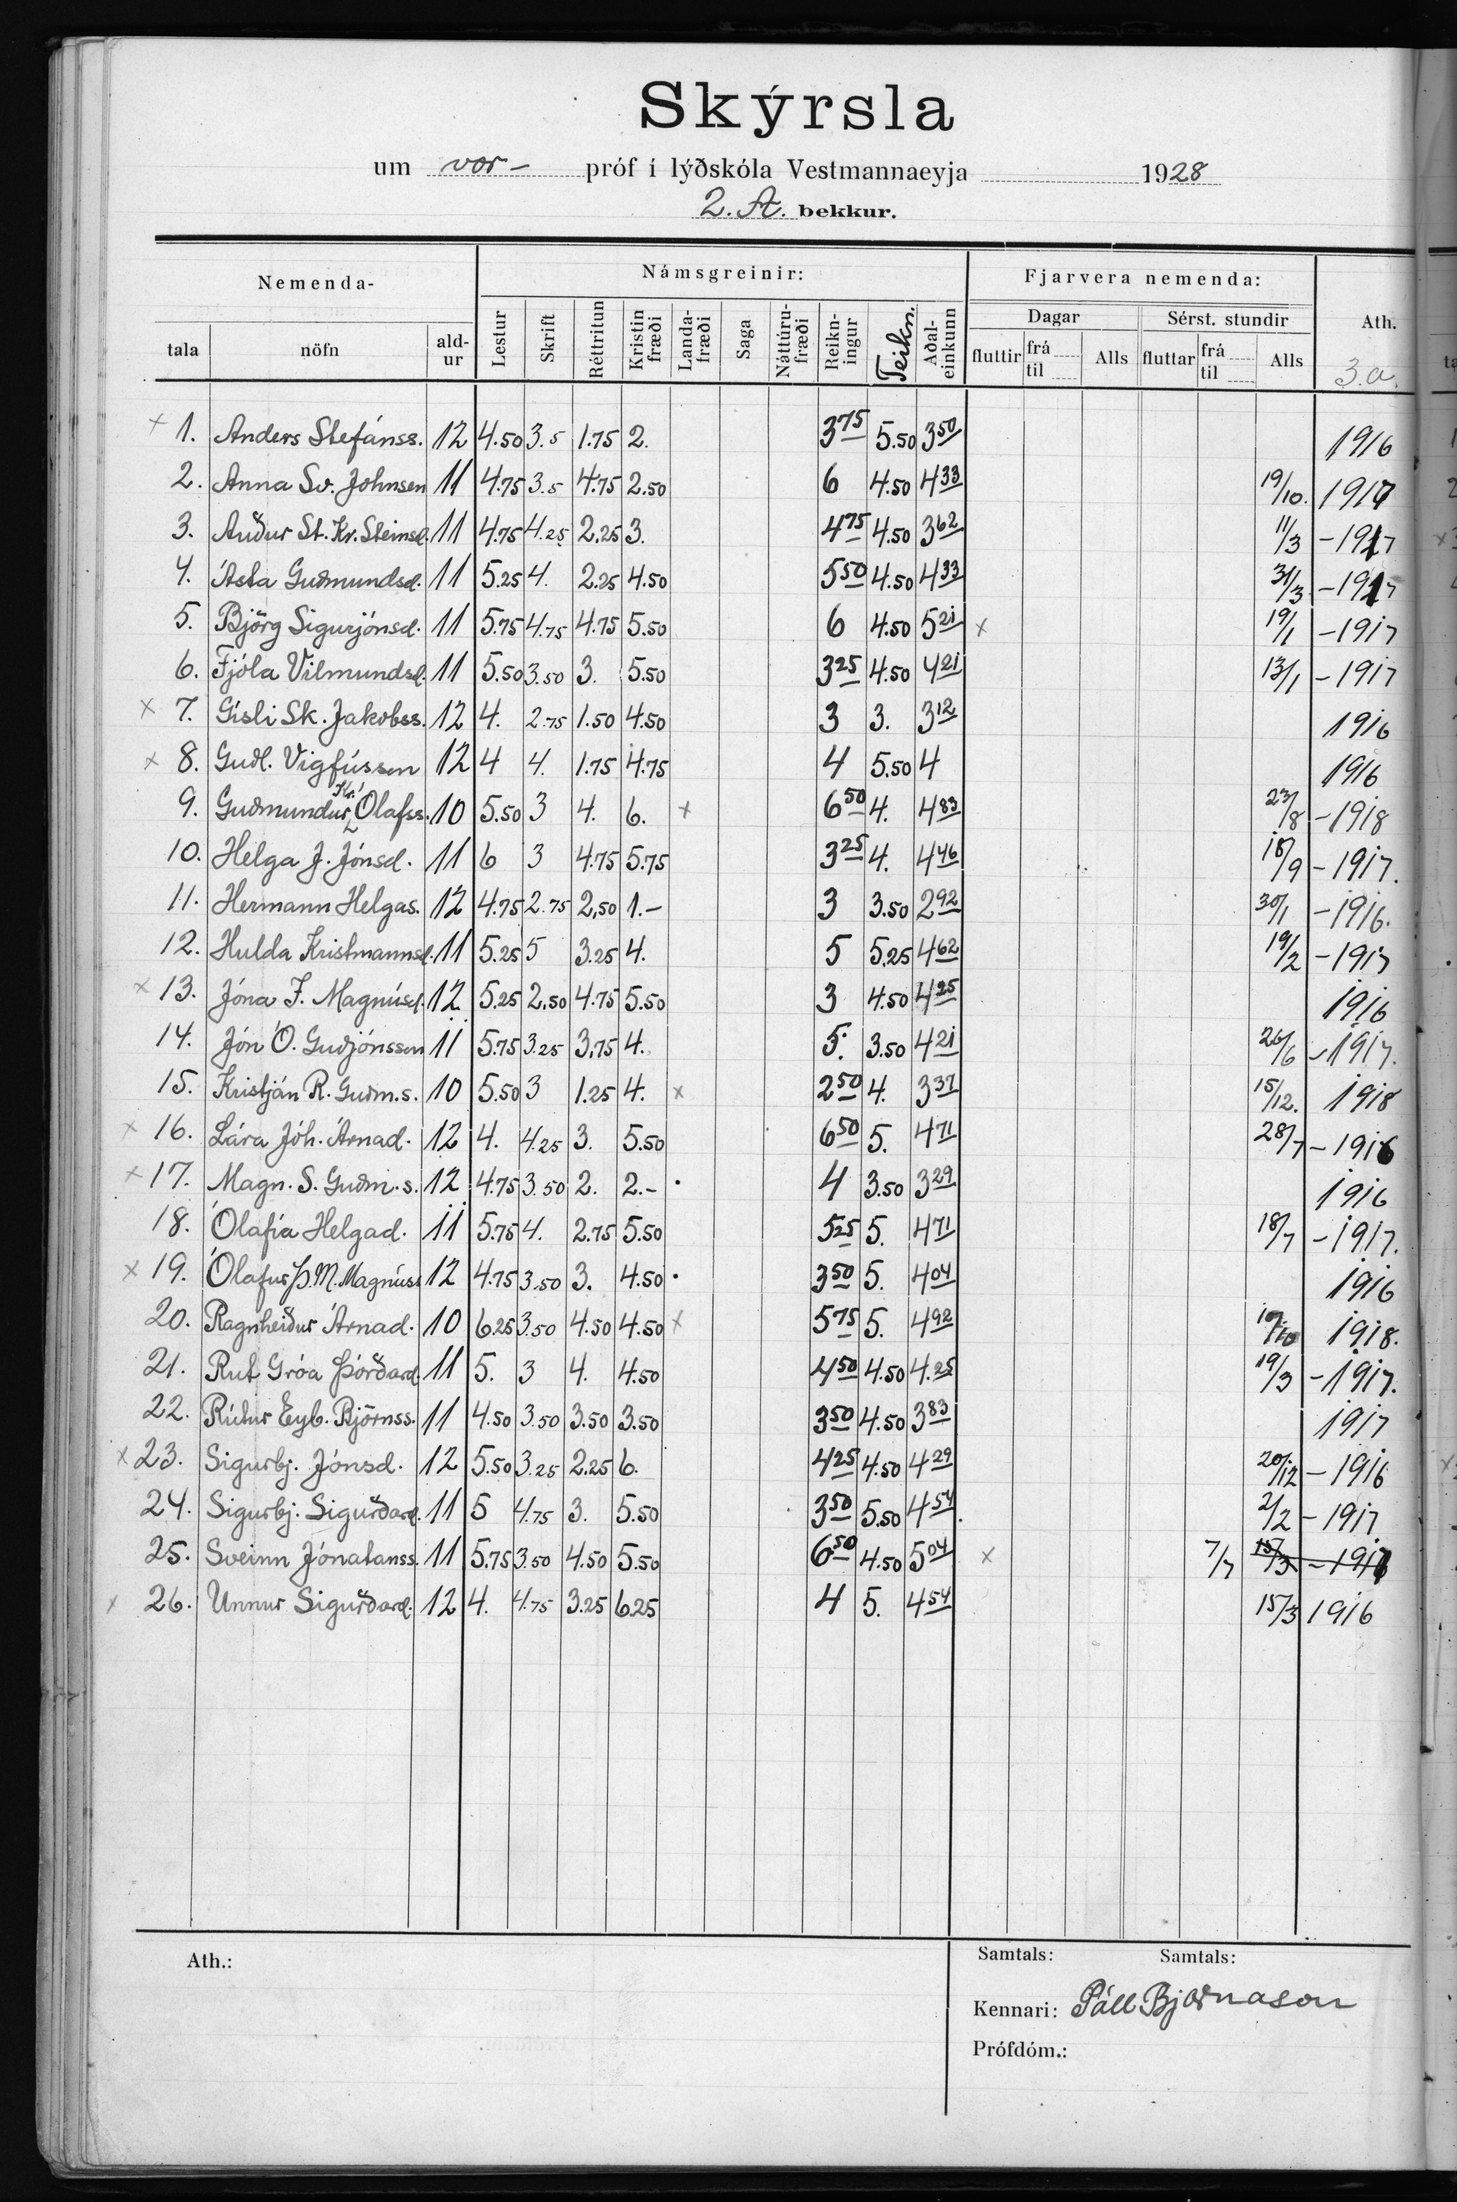 Skýrsla
um vor- próf í lýðskóla Vestmannaeyja 1928
2. A. bekkur.
Nemenda- Námsgreinir: Fjarvera nemenda: Ath.
Dagar Sérst. stundir
tala nöfn ald-ur Lestur Skrift Réttritun Kristin fræði Landa-fræði Saga Náttúru-fræði Reikn-ingur Teikn. Aðal-einkunn fluttir frá til Alls fluttar frá til Alls 3.a.
× 1. Anders Stefánss. 12 4.50 3.5 1.75 2. 3 75 5.50 3 50 1916
2. Anna Sv. Johnsen 11 4.75 3.5 4.75 2.50 6 4.50 4 33 19/10. 1917
3. Auður St. Kr. Steinsd. 11 4.75 4.25 2.25 3. 4 75 4.50 3 62 11/3 -1917
4. Ásta Guðmundsd. 11 5.25 4. 2.25 4.50 5 50 4.50 4 33 31/3 -1917
5. Björg Sigurjónsd. 11 5.75 4.75 4.75 5.50 6 4.50 5 21 × 19/1 -1917
6. Fjóla Vilmundsd. 11 5.50 3.50 3. 5.50 3 25 4.50 4 21 13/1 -1917
× 7. Gísli Sk. Jakobss. 12 4. 2.75 1.50 4.50 3 3. 3 12 1916
× 8. Guðl. Vigfússon 12 4 4. 1.75 4.75 4 5.50 4 1916
9. Guðmundur Kr. Ólafss. 10 5.50 3 4. 6. × 6 50 4. 4 83 23/8 -1918
10. Helga J. Jónsd. 11 6 3 4.75 5.75 3 25 4. 4 46 18/9 -1917.
11. Hermann Helgas. 12 4.75 2.75 2,50 1.- 3 3.50 2 92 30/1 -1916.
12. Hulda Kristmannsd. 11 5.25 5 3.25 4. 5 5.25 4 62 19/2 -1917
× 13. Jóna F. Magnúsd. 12 5.25 2.50 4.75 5.50 3 4.50 4 25 1916
14. Jón Ó. Guðjónsson 11 5.75 3.25 3,75 4. 5. 3.50 4 21 26/6 -1917.
15. Kristján R. Guðm.s. 10 5.50 3 1.25 4. × 2 50 4. 3 37 15/12. 1918
× 16. Lára Jóh. Árnad. 12 4. 4.25 3. 5.50 6 50 5. 4 71 28/7 -1916
× 17. Magn. S. Guðm.s. 12 4.75 3.50 2. 2.- 4 3.50 3 29 1916
18. Ólafía Helgad. 11 5.75 4. 2.75 5.50 5 25 5. 4 71 18/7 -1917.
× 19. Ólafur Þ. M. Magnúss 12 4.75 3.50 3. 4.50 3 50 5. 4 04 1916
20. Ragnheiður Árnad. 10 6.25 3.50 4.50 4.50 × 5 75 5. 4 92 1918.
21. Rut Gróa Þórðard. 11 5. 3 4. 4.50 4 50 4.50 4.25 19/3 -1917.
22. Rútur Eyb. Björnss. 11 4.50 3.50 3.50 3.50 3 50 4.50 3 83 1917
× 23. Sigurbj. Jónsd. 12 5.50 3.25 2.25 6. 4 25 4.50 4 29 20/12 -1916
24. Sigurbj. Sigurðard. 11 5 4.75 3. 5.50 3 50 5.50 4 54. 2/2 -1917
25. Sveinn Jónatanss. 11 5.75 3.50 4.50 5.50 6 50 4.50 5 04 × 7/7 15/3 -1917
× 26. Unnur Sigurðard. 12 4. 4.75 3.25 6.25 4 5. 4 54 15/3 1916
Ath.: Samtals: Samtals:
Kennari: Páll Bjarnason
Prófdóm.: